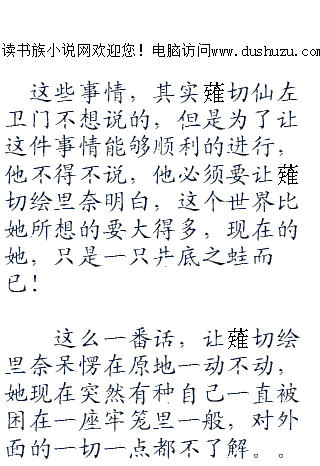 读书族小说网欢迎您！电脑访问www.dushuzu.com
这些事情，其实薙切仙左
卫门不想说的，但是为了让
这件事情能够顺利的进行，
他不得不说，他必须要让薙
切绘里奈明白，这个世界比
她所想的要大得多，现在的
她，只是一只井底之蛙而
已！
这么一番话，让薙切绘
里奈呆愣在原地一动不动，
她现在突然有种自己一直被
困在一座牢笼里一般，对外
面的一切一点都不了解。。